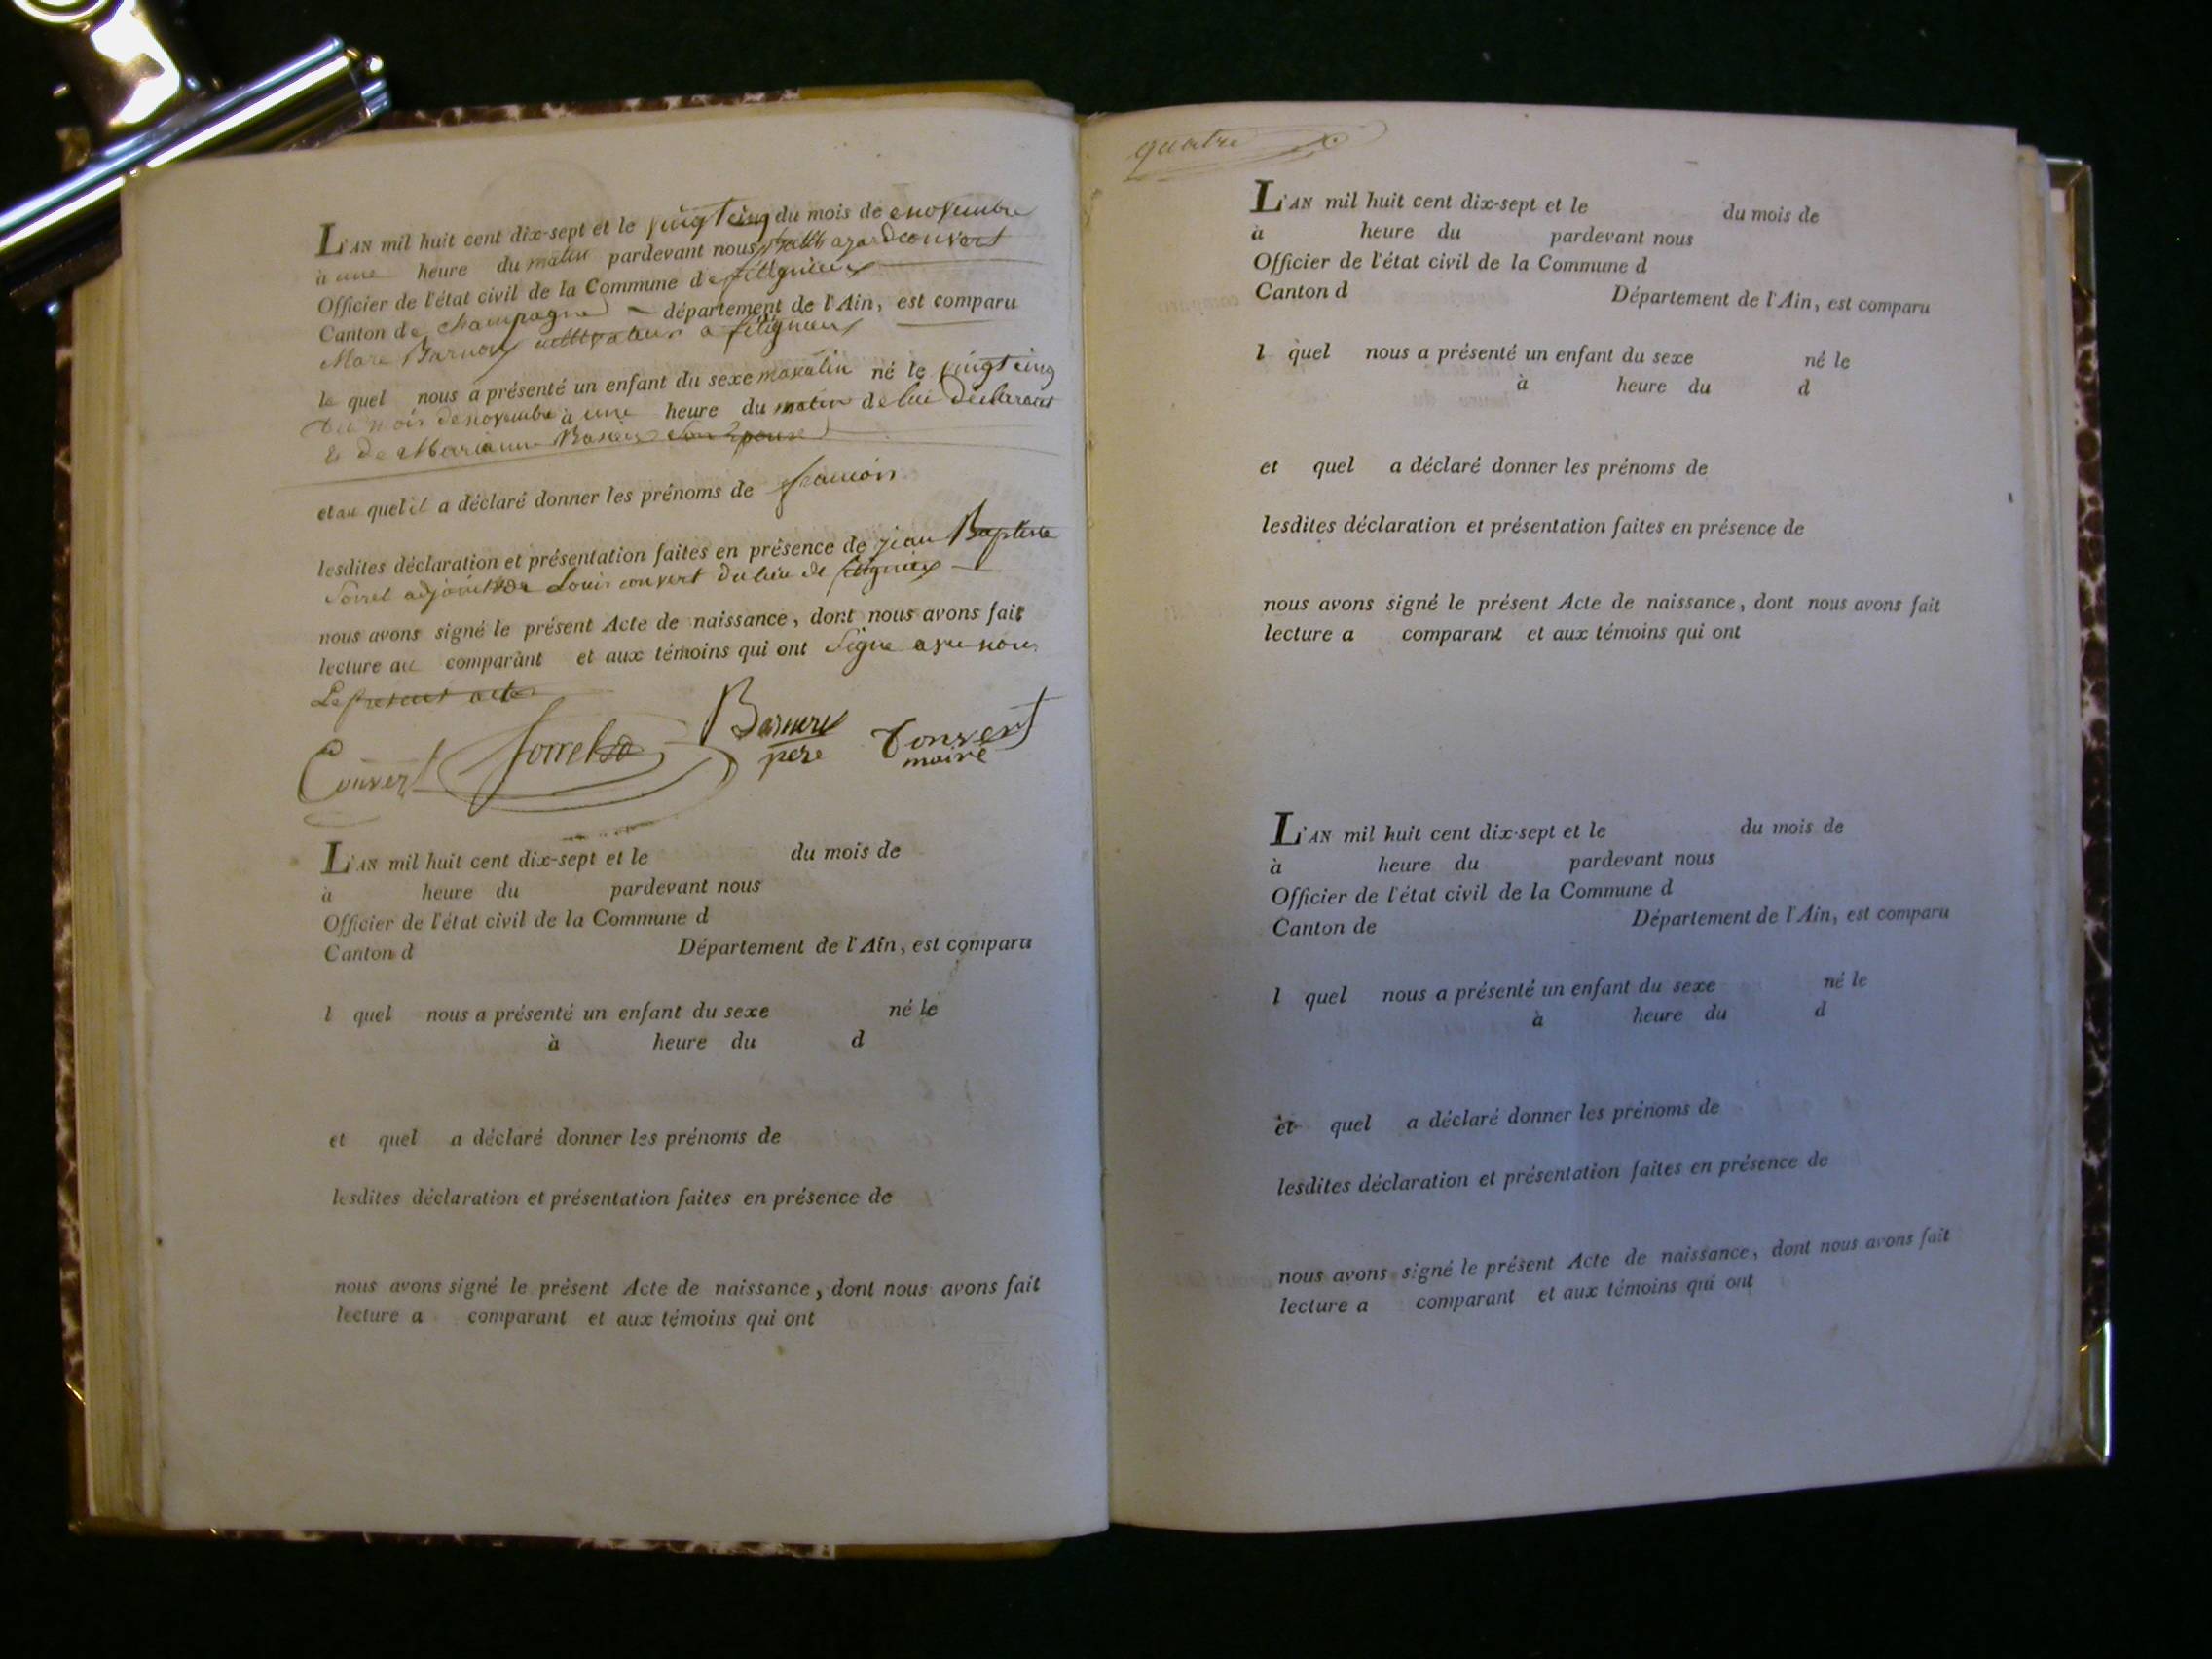 L'AN mil huit cent dix-sept et le vingt cinq du mois de novembre
à une heure du matin pardevant nous convert
Officier de l'état civil de la Commune de fitignieux
Canton de champagne département de l'Ain, est comparu
Marc cultivateur a fitignieux
le quel nous a présenté un enfant du sexe masculin né le vingt cinq
du mois de novembre à une heure du matin de lui déclarant
et de Marianne son épouse
et au quel il a déclaré donner les prénoms de francois
lesdites déclaration et présentation faites en présence de jean Baptiste
Sorrel adjoint Louis convert du lieu de fitignieux
nous avons signé le présent Acte de naissance, dont nous avons fait
lecture au comparant et aux témoins qui ont Signe avec nous
Le present acte
Convert Sorrel père Convert
maire
L'AN mil huit cent dix-sept et le du mois de
à heure du pardevant nous
Officier de l'état civil de la Commune d
Canton d Département de l'Ain, est comparu
l quel nous a présenté un enfant du sexe né le
à heure du d
et quel a déclaré donner les prénoms de
lesdites déclaration et présentation faites en présence de
nous avons signé le présent Acte de naissance, dont nous avons fait
lecture a comparant et aux témoins qui ont
quatre
L'AN mil huit cent dix-sept et le du mois de
à heure du pardevant nous
Officier de l'état civil de la Commune d
Canton d Département de l'Ain, est comparu
l quel nous a présenté un enfant du sexe né le
à heure du d
et quel a déclaré donner les prénoms de
lesdites déclaration et présentation faites en présence de
nous avons signé le présent Acte de naissance, dont nous avons fait
lecture a comparant et aux témoins qui ont
L'AN mil huit cent dix-sept et le du mois de
à heure du pardevant nous
Officier de l'état civil de la Commune d
Canton de Département de l'Ain, est comparu
l quel nous a présenté un enfant du sexe né le
à heure du d
et quel a déclaré donner les prénoms de
lesdites déclaration et présentation faites en présence de
nous avons signé le présent Acte de naissance, dont nous avons fait
lecture a comparant et aux témoins qui ont